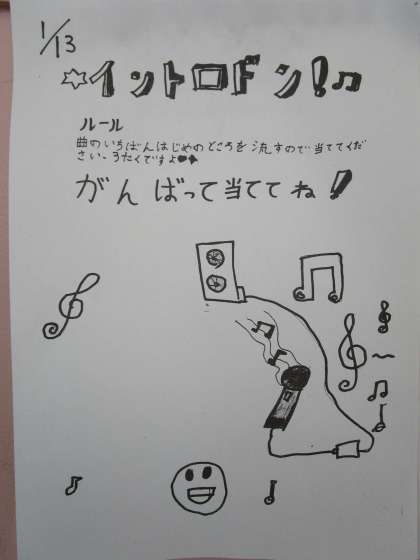 1/13
☆イントロドン!♫
ルール
曲のいちばんはじめのところを流すので当ててくだ
さい。うたくですよ♥♠
がんばって当ててね!